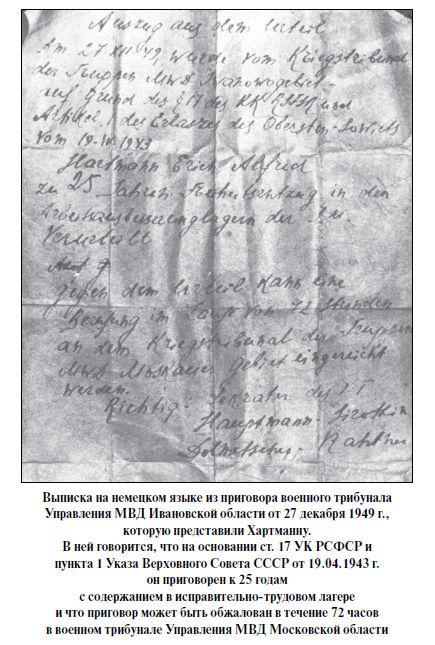 Auszug aus dem Urteil.
Am 27 XII 49, wurde vom Kriegstribunal
der Truppen MWD Iwanowogebiet
auf Grund des § 17 des KK RSFSR und
Artikel 1 des Erlasses des Obersten Sowiets
vom 19-IV-1943
Hartmann Erich Alfred
zu 25 Jahren Freiheitsentzug in den
Arbeitsbesserungslagern der
Verurteilt
gegen dem Urteil kann eine
Berufung im Laufe von 72 Stunden
an dem Kriegstribunal der Truppen
MWD Moskauer Gebiet eingereicht
werden.
Richtig: Sekretär des
Hauptmann - Sirotkin
Dolmetscher -
Выписка на немецком языке из приговора военного трибунала
Управления МВД Ивановской области от 27 декабря 1949 г.,
которую представили Хартманну.
В ней говорится, что на основании ст. 17 УК РСФСР и
пункта 1 Указа Верховного Совета СССР от 19.04.1943 г.
он приговорен к 25 годам
с содержанием в исправительно-трудовом лагере
и что приговор может быть обжалован в течение 72 часов
в военном трибунале Управления МВД Московской области